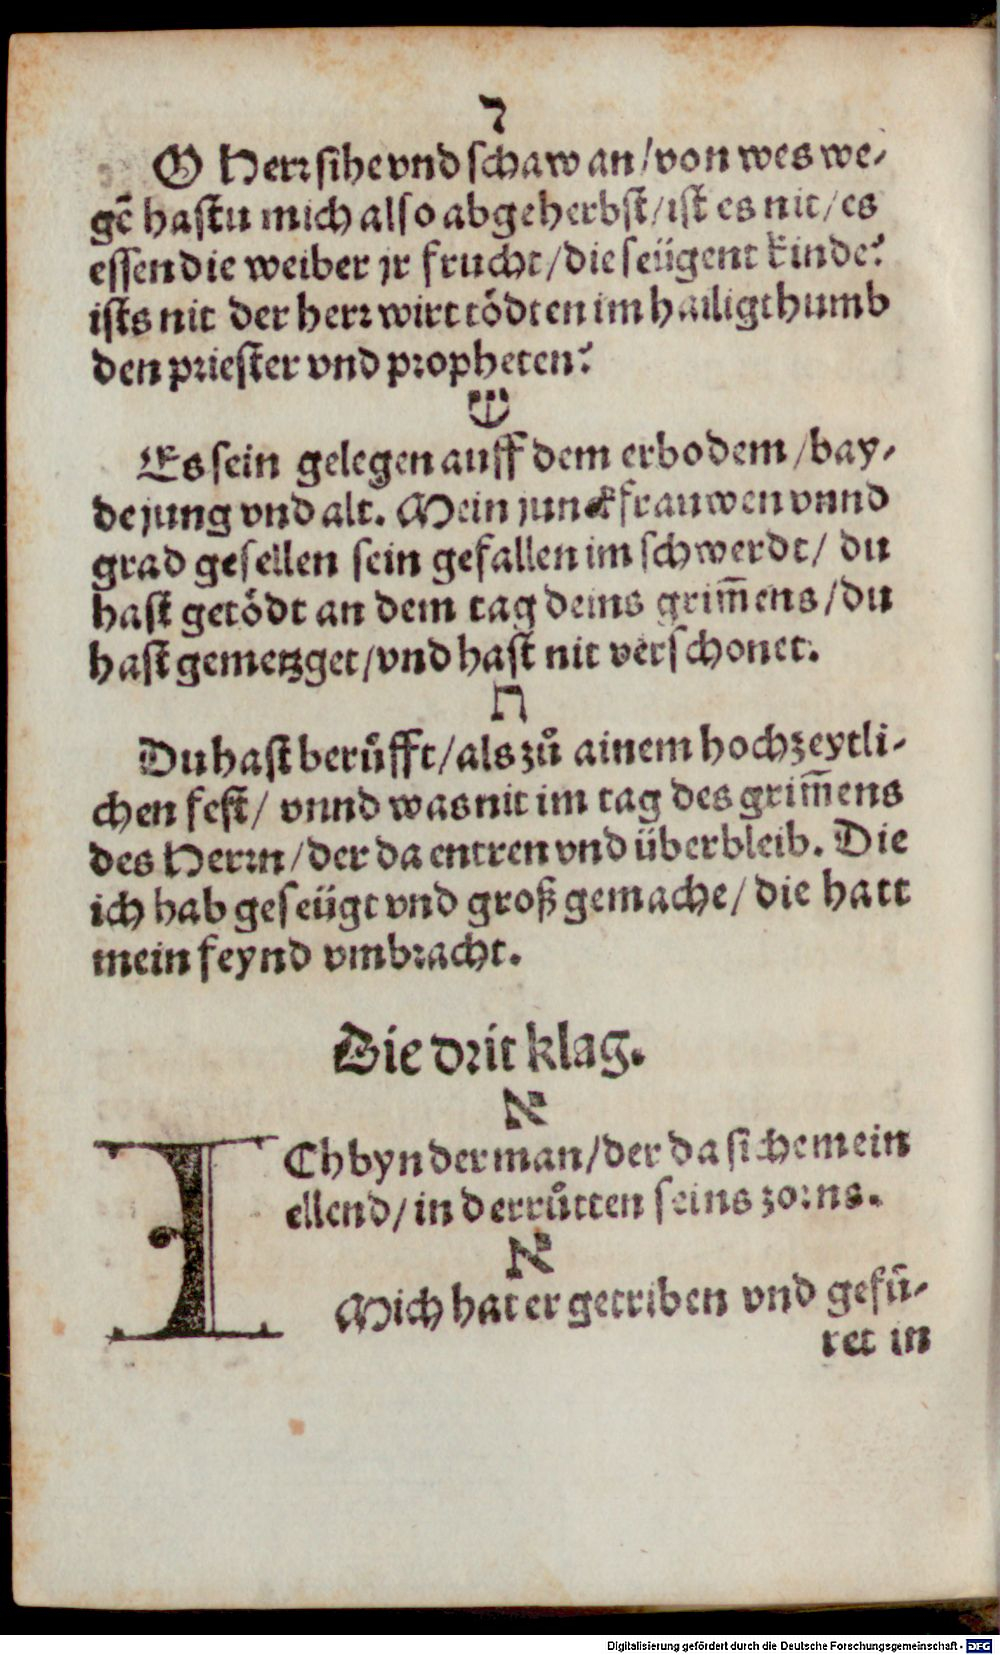 ר
O Herr sihe vnd schaw an/von wes we-
gē hastu mich also abgeherbst/ist es nit/es
essen die weiber jr frucht/die seügent kinde?
ists nit der herr wirt tödten im hailigthumb
den priester vnd propheten?
ש
Es sein gelegen auff dem erbodem/bay-
de jung vnd alt. Mein junckfrauwen vnnd
grad gesellen sein gefallen im schwerdt/ du
hast getödt an dem tag deins grim̄ens/du
hast gemetzget/vnd hast nit verschonet.
ת
Du hast berůfft/als zů ainem hochzeytli-
chen fest/ vnnd was nit im tag des grim̄ens
des Herrn/der da entren vnd überbleib. Die
ich hab geseügt vnd groß gemache/ die hatt
mein feynd vmbracht.
Die drit klag.
א
ICh byn der man/der da sihe mein
ellend/in der růtten seins zorns.
א
Mich hat er getriben vnd gefü-
ret in
Digitalisierung gefördert durch die Deutsche Forschungsgemeinschaft - DFG